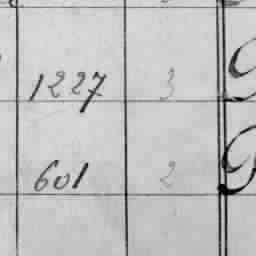 1227 3
601 2